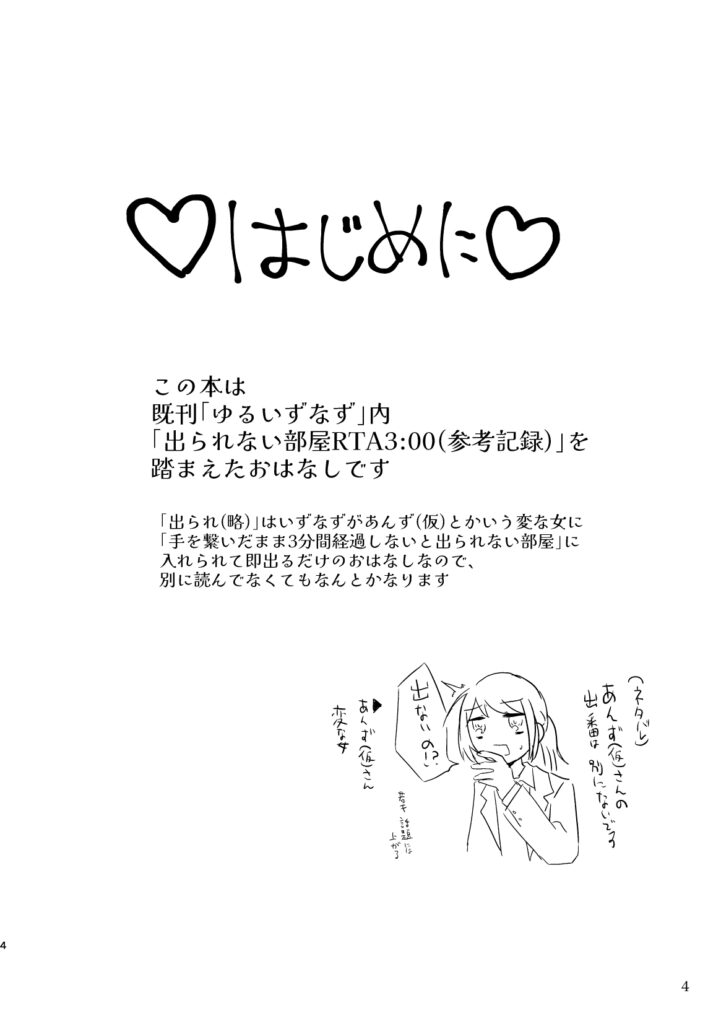 ♡はじめに♡
この本は
既刊「ゆるいずなず」内
「出られない部屋RTA3:00(参考記録)」を
踏まえたおはなしです
「出られ(略)」はいずなずがあんず(仮)とかいう変な女に
「手を繋いだまま3分間経過しないと出られない部屋」に
入れられて即出るだけのおはなしなので、
別に読んでなくてもなんとかなります
(ネタバレ)
あんず(仮)さんの
出番は別にないでる
出ないの!?
あんず(仮)さん
変な女
若干話題には
上がる
4
4